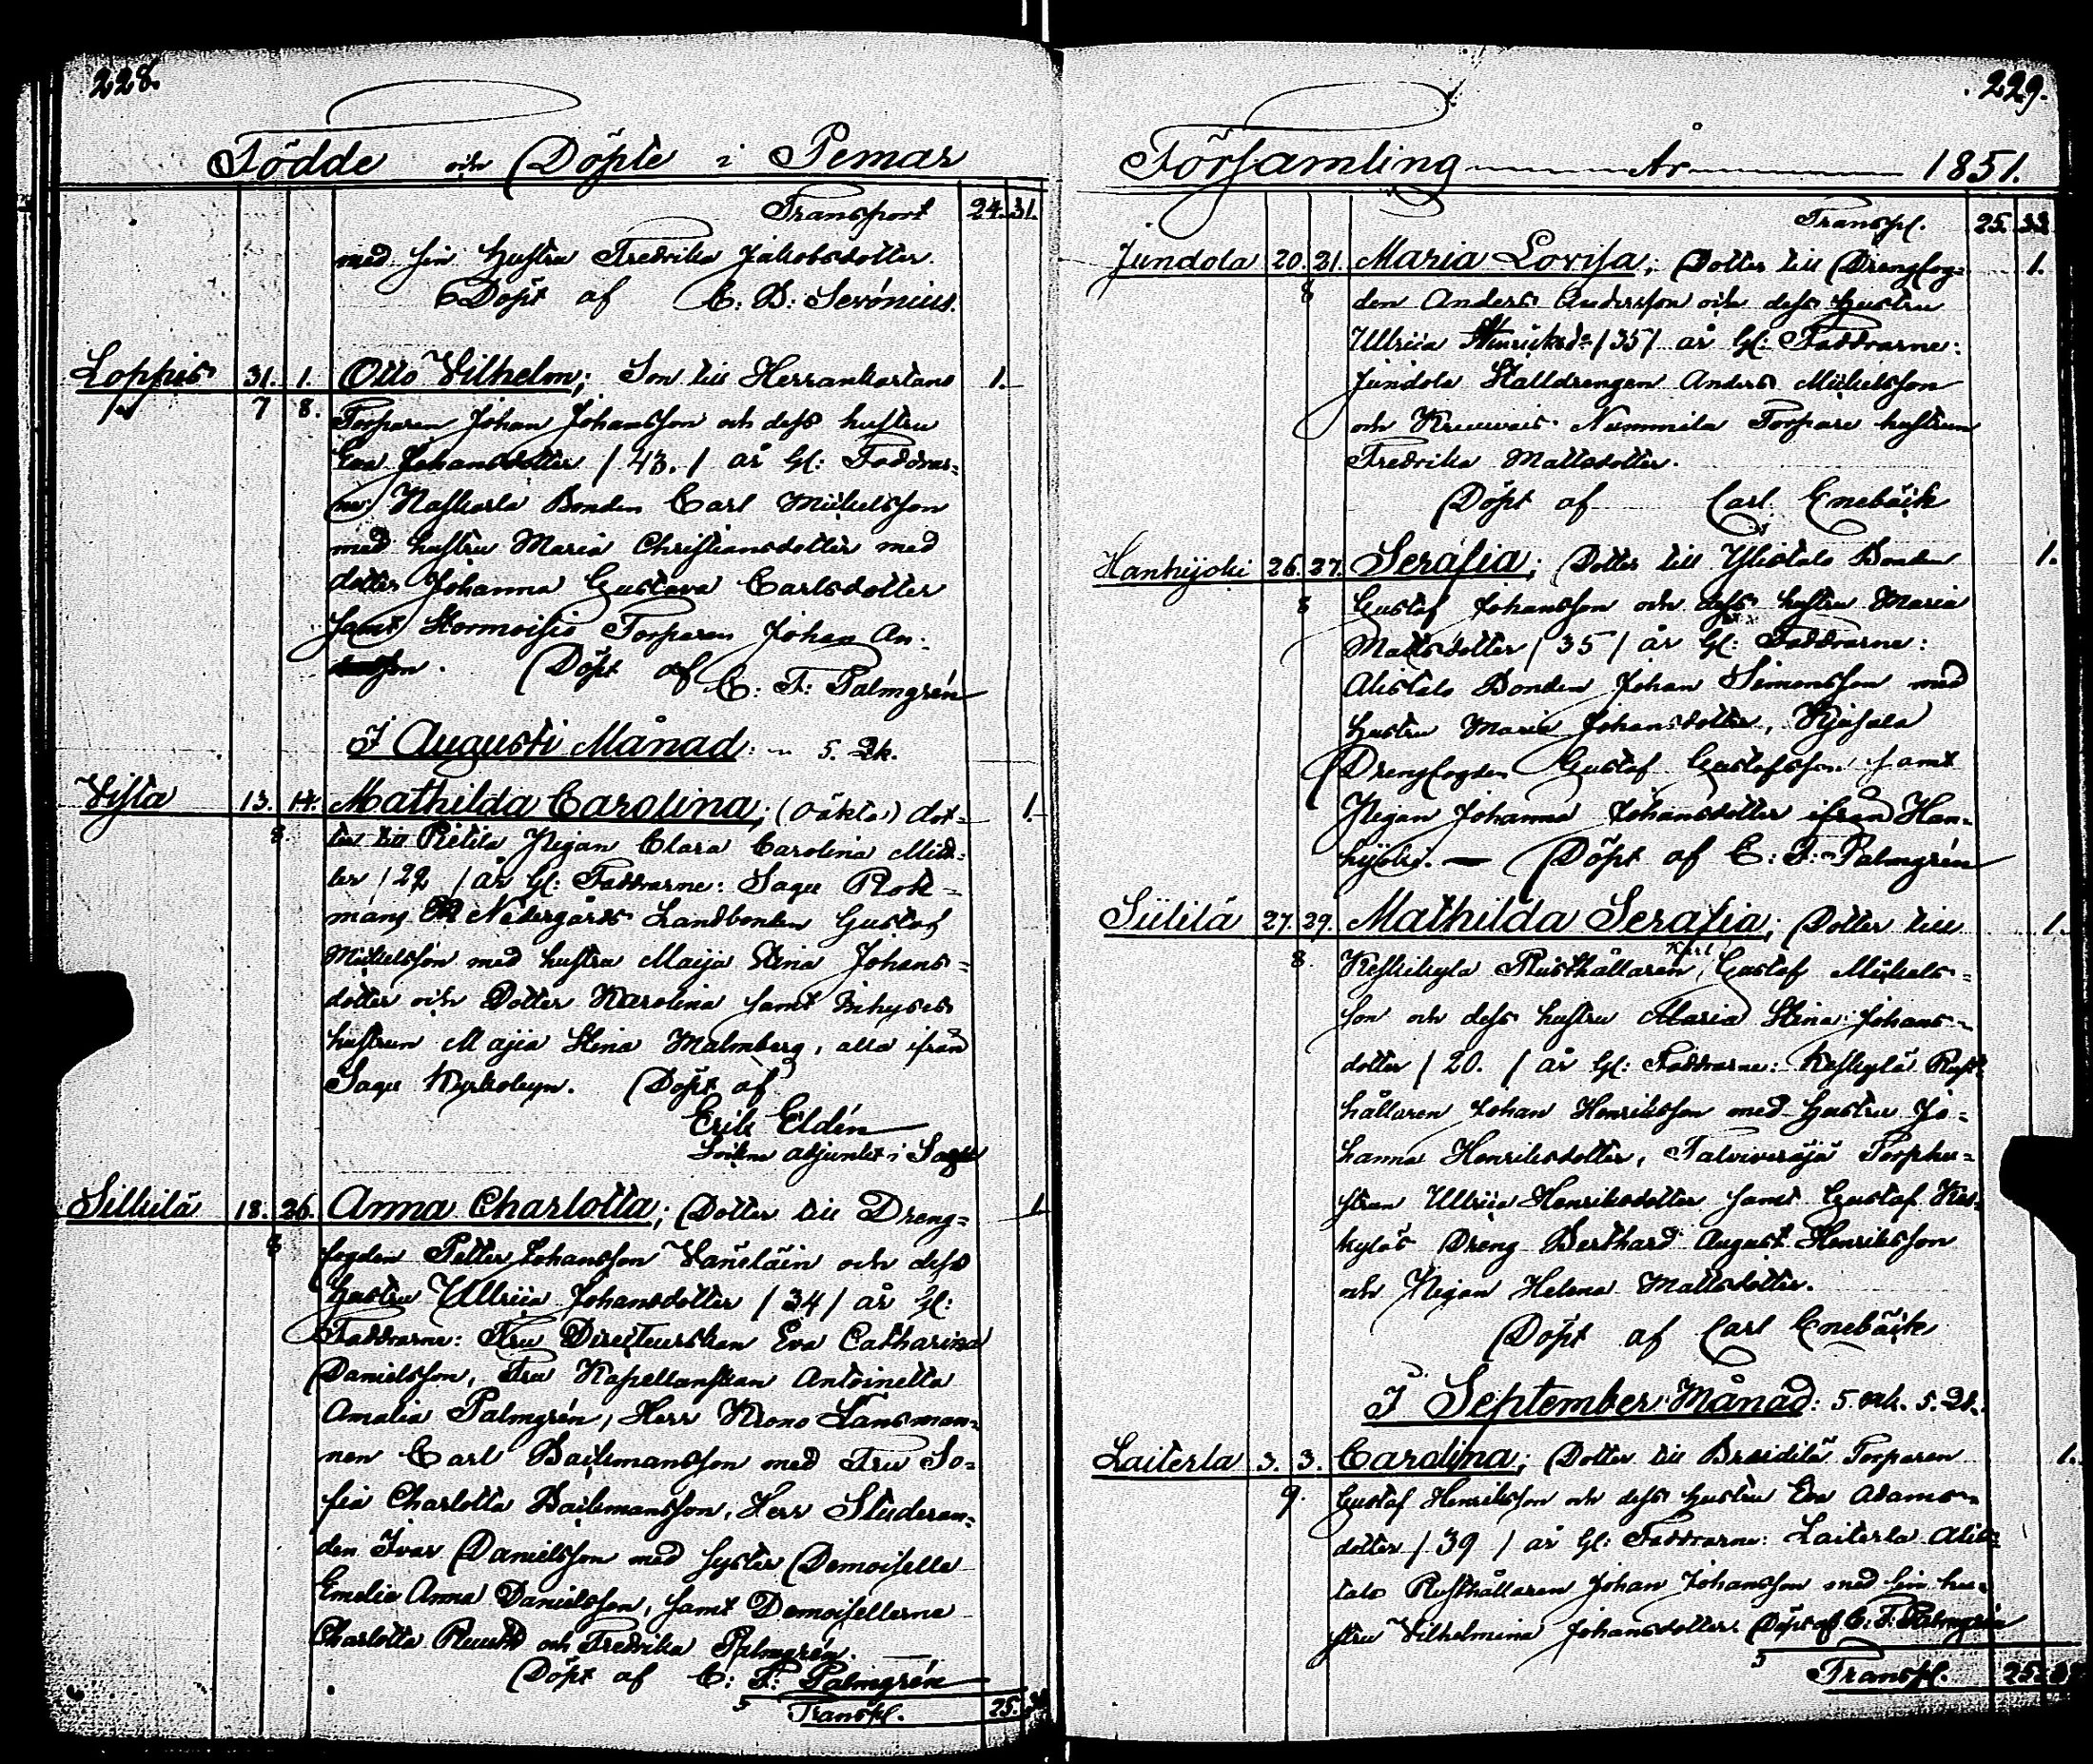 228.
Födde och Döpte i Pemar
Transport 24. 31.
med sin hustru Fredrika Jakobsdotter
Döpt af C: B: Serónius.
Loppis 31. 1. Otto Vilhelm; Son till Herrankartano 1.
7 8. Torparen Johan Johansson och dess hustru
Eva Johansdotter / 43. / år gl: Faddrar-
ne: Naskarla Bonden Carl Mickelsson
med hustru Maria Christiansdotter med
dotter Johanna Gustava Carlsdotter
samt Kormoisio Torparen Johan An-
Döpt af C: F: Palmgrén
I Augusti Månad: 5. 2k.
Vista 13. 14. Mathilda Carolina; (oäkta) dot- 1.
8. ter till Pietilä Pigan Clara Carolina
/ år gl: Faddrarne: Sagu
Nedergårds Landbonden Gustaf
Mickelsson med hustru Maija Stina Johans-
dotter och Dotter Karolina samt Inhyses
hustrun Majia Stina Malmberg, alla ifrån
Sagu Kyrkobyn. Döpt af
Erik Eldén
adjunkt i Sagu
Silkilä 18. 26. Anna Charlotta; Dotter till Dreng- 1.
8 fogden Petter Johansson och dess
Hustru Ullriia Johansdotter / 34 / år gl:
Faddrarne: Fru Directeurskan Eva Catharina
Danielsson, Fru Kapellanskan Antoinetta
Amalia Palmgrén, Herr Krono Länsman-
nen Carl Backmansson med Fru So-
fia Charlotta Backmansson, Herr Studeran-
den Ivar Danielsson med syster Demoiselle
Emelie Anna Danielsson, samt Demoisellerne
Charlotta och Fredrika Palmgrén.
Döpt af C: F: Palmgrén
Transp. 25.
229.
Församling År 1851.
Transp. 25. 33
Jundola 20. 21. Maria Lovisa; Dotter till Drengfog- 1.
8 den Anders Andersson och dess hustru
Ullriia Henriksd: / 35 / år gl: Faddrarne:
Jundola Stalldrengen Anders Mickelsson
och Nummila Torpare hustrun
Fredrika Mattsdotter.
Döpt af Carl Enebäck
Hanhijoki 26. 27. Serafia; Dotter till Ylistalo Bonden 1.
8 Gustaf Johansson och dess hustru Maria
Mattsdotter / 35 / år gl: Faddrarne:
Alistalo Bonden Johan Simonsson med
hustru Maria Johansdotter,
Drengfogden Gustaf Gustafsson samt
Pigan Johanna Johansdotter ifrån Han-
hijoki. — Döpt af C: F: Palmgrén
Siililä 27. 29. Mathilda Serafia; Dotter till 1.
8. Keskikyla Rusthållaren Karl Gustaf Mickels-
son och dess hustru Maria Stina Johans-
dotter / 20. / år gl: Faddrarne: Keskkylä Rust-
hållaren Johan Henriksson med hustru Jo-
hanna Henriksdotter, Torphu-
strun Ullriia Henriksdotter samt Gustaf Kes-
kyläs Dreng Berthard August Henriksson
och Pigan Helena Mattsdotter.
Döpt af Carl Enebäck
I September Månad: 5. och. 5. 2k.
Laiterla 3. 3. Carolina; Dotter till Torparen 1.
9. Gustaf Henriksson och dess hustru Eva Adams-
dotter / 39 / år gl: Faddrarne: Laiterla Alis-
talo Rusthållaren Johan Johansson med sin hu-
stru Vilhelmina Johansdotter. Döpt af C: F: Palmgrén
Transp. 25.